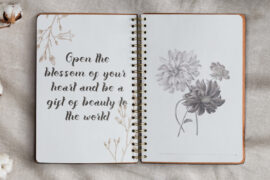 Open the
blossom of your
heart and be a
gift of beauty to
the world